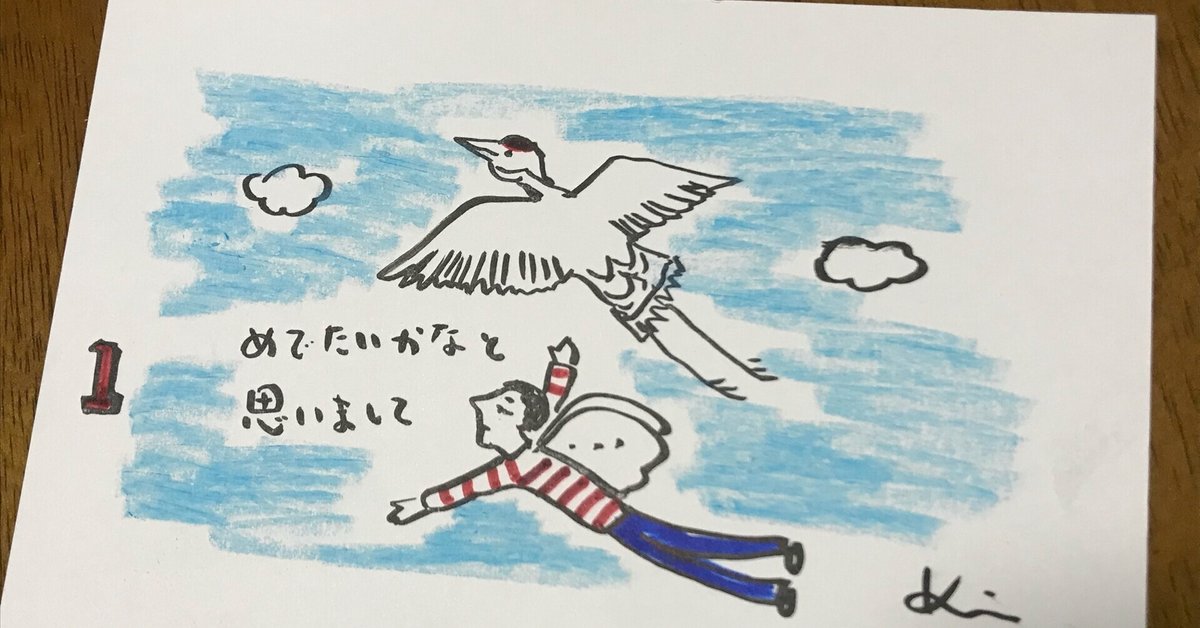 1
めでたいかなと
思いまして